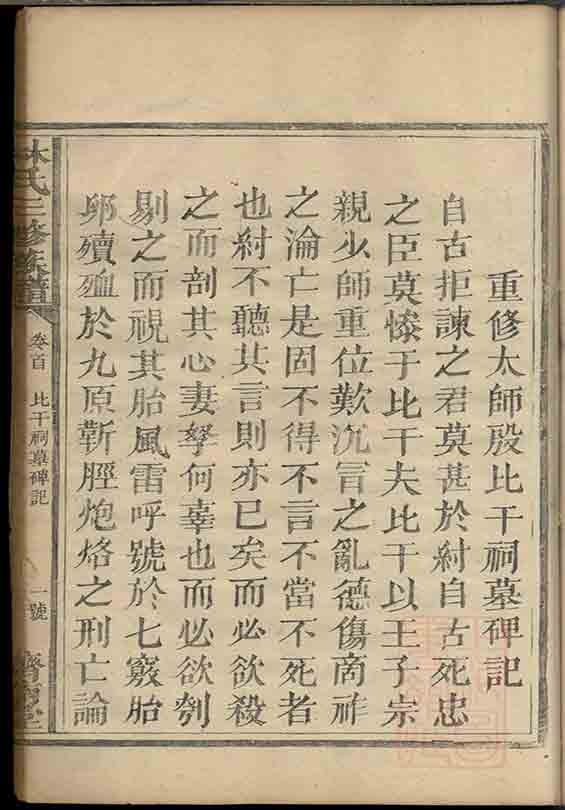 重修太師殷比干祠墓碑記
自古拒諫之君莫甚於紂自古死忠
之臣莫慘于比干夫比干以王子宗
親少師重位歎沉冒之亂德傷商祚
之淪亡是固不得不言不當不死者
也紂不聽其言則亦已矣而必欲殺
之而剖其心妻孥何辜也而必欲刳
剔之而視其胎風雷呼號於七竅胎
卵殰殈於九原斮脛炮烙之刑亡論
林氏三修族譜
卷首
比干祠墓碑記
一號